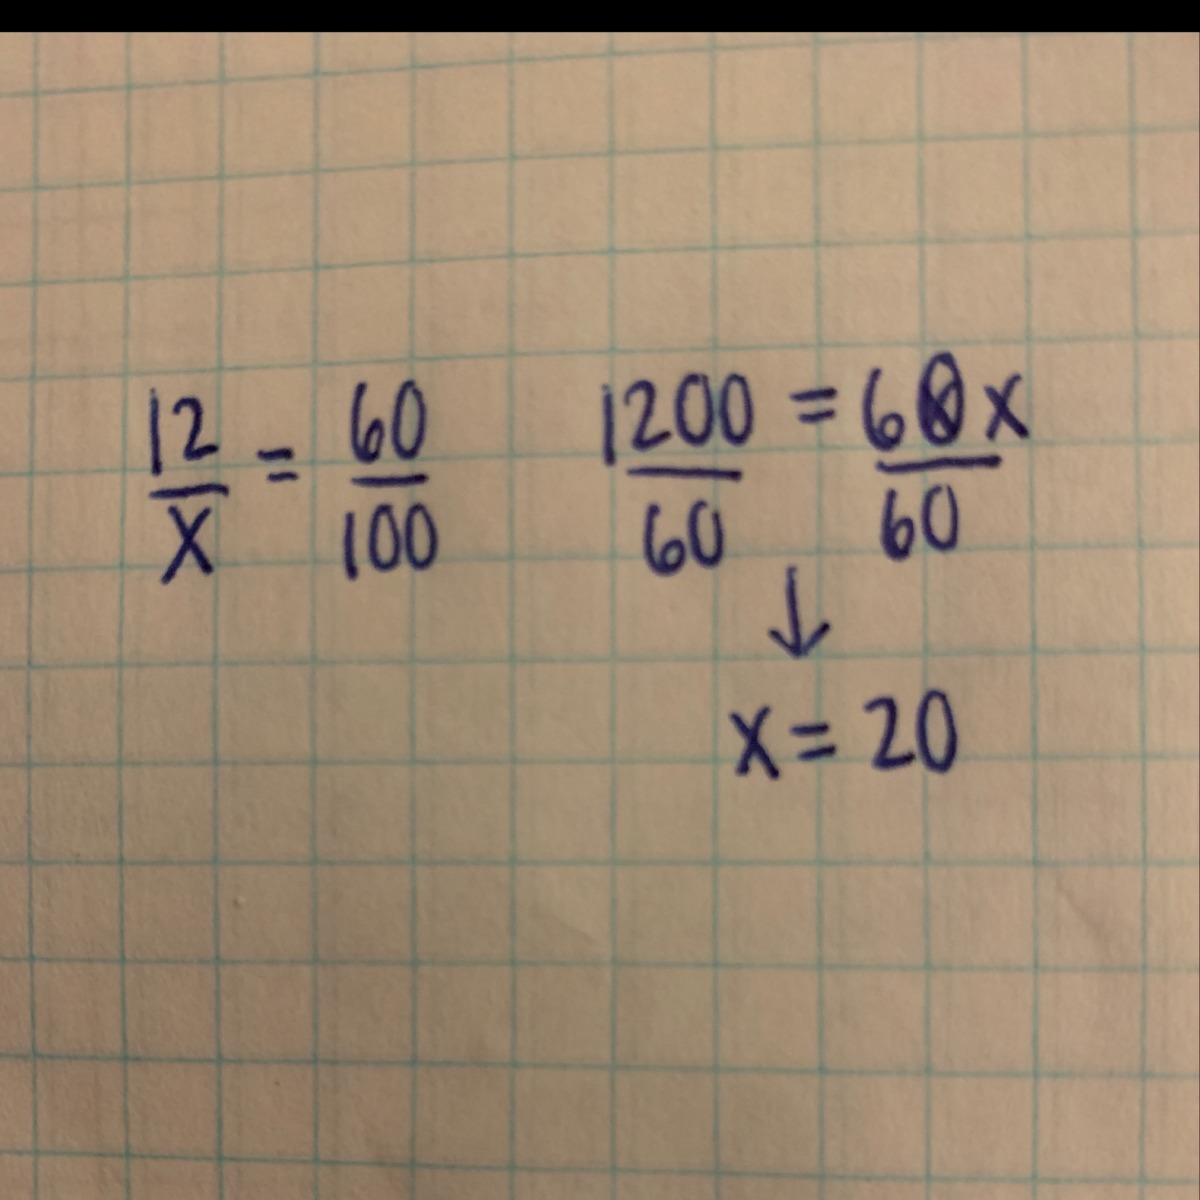 12/x = 60/100
1200/60 = 60x/60
↓
x = 20